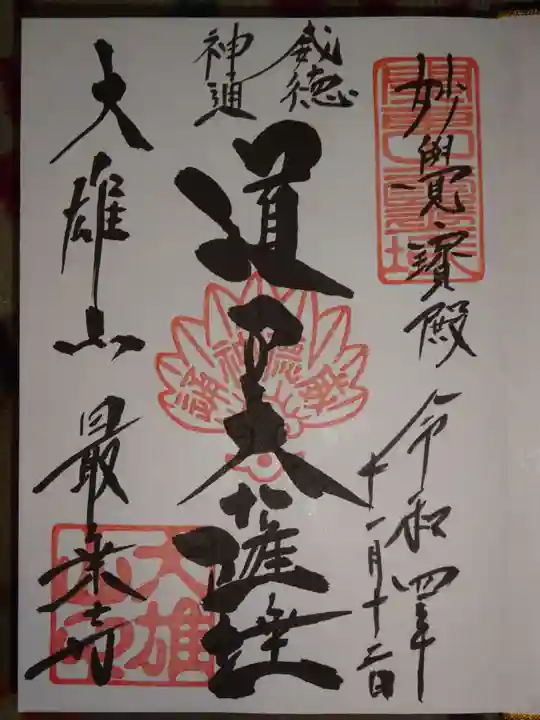 妙覺寶殿
令和四年
十一月十二日
威徳
神通
道了大薩埵
大雄山 最乗寺
威徳神通
大雄山印